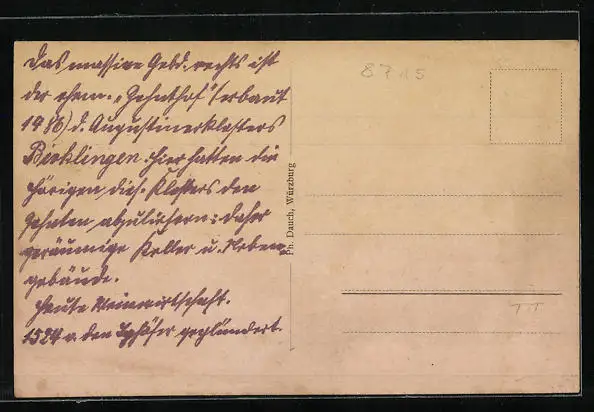 Das massive Gebd. rechts ist
der ehem. „Zehnthof" (erbaut
1486) d. Augustinerklosters
Birklingen. Hier hatten die
Hörigen dies. Klosters den
Zehnten abzuliefern; daher
geräumige Keller u. Neben-
gebäude.
Heute Weinwirtschaft.
1524 v. den Iphöfer geplündert.
Ph. Dauch, Würzburg
8715
TT